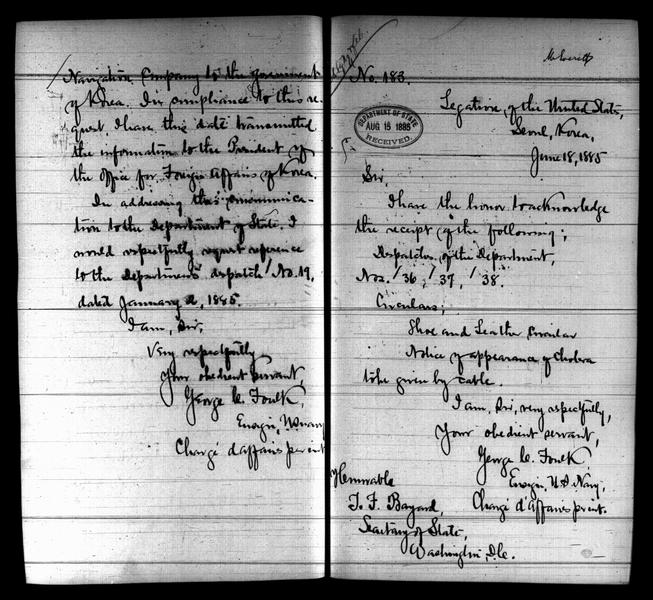 Navigation Company to the Government
of Korea. In compliance to this re-
quest I have this date transmitted
the information to the President of
the Office for Foreign Affairs of Korea.
In addressing this communica-
tion to the Department of State, I
would respectfully request reference
to the Department's dispatch No. 19,
dated January 2, 1885.
I am, Sir,
Very respectfully
Your obedient servant,
George C. Foulk,
Ensign, U.S. Navy
Chargé d'affaires p int
No. 183.
Legation of the United States,
Seoul, Korea,
June 18, 1885
DEPARTMENT OF STATE
AUG 15 1885
RECEIVED.
Sir,
I have the honor to acknowledge
the receipt of the following;
Despatches of the Department,
Nos. 36, 37, 38.
Circulars;
Shoe and Leather Circular
Notice of appearance of Cholera
to be given by cable.
I am, Sir, very respectfully,
Your obedient servant,
George C. Foulk
Ensign, U.S. Navy,
Chargé d'affaires p. int.
Honorable
T. F. Bayard,
Secretary of State,
Washington, D.C.